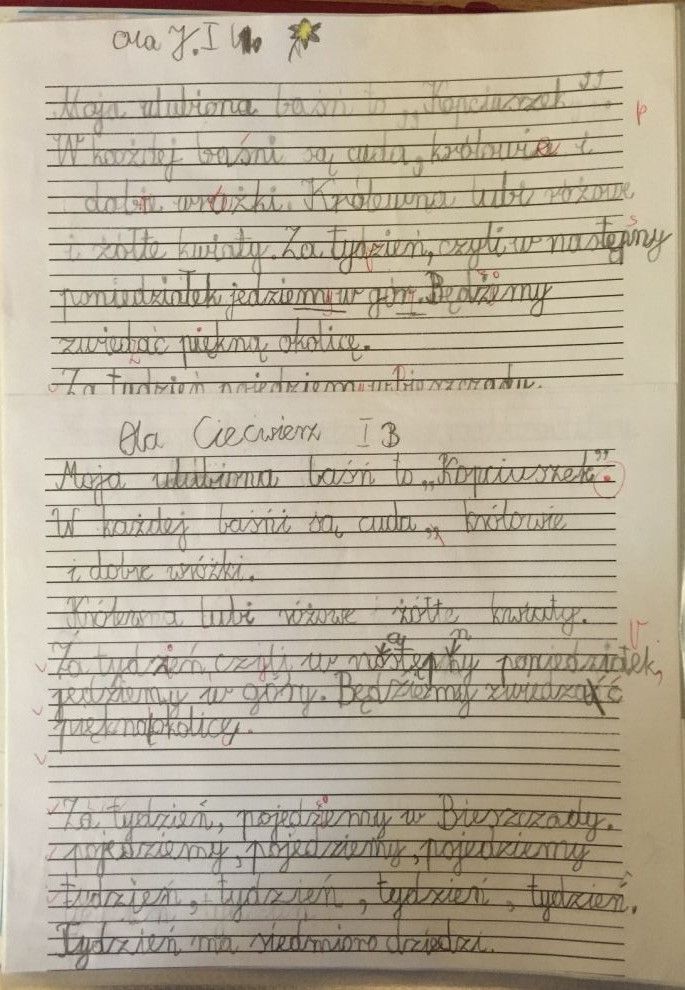 Ola J. I
Moja ulubiona baśń to „Kopciuszek”.
W każdej baśni są cuda, królowie i
dobre wróżki. Królewna lubi różowe
i żółte kwiaty. Za tydzień, czyli w następny
poniedziałek jedziemy w góry. Będziemy
zwiedzać piękną okolicę.
Za tydzień pojedziemy w Bieszczady.
Ola Ciećwierz I B
Moja ulubiona baśń to „Kopciuszek”.
W każdej baśni są cuda, królowie
i dobre wróżki.
Królewna lubi różowe i żółte kwiaty.
Za tydzień, czyli w następny poniedziałek,
jedziemy w góry. Będziemy zwiedzać
piękną okolicę.
Za tydzień, pojedziemy w Bieszczady.
pojedziemy, pojedziemy, pojedziemy
tydzień, tydzień, tydzień, tydzień.
Tydzień ma siedmioro dziedzi.